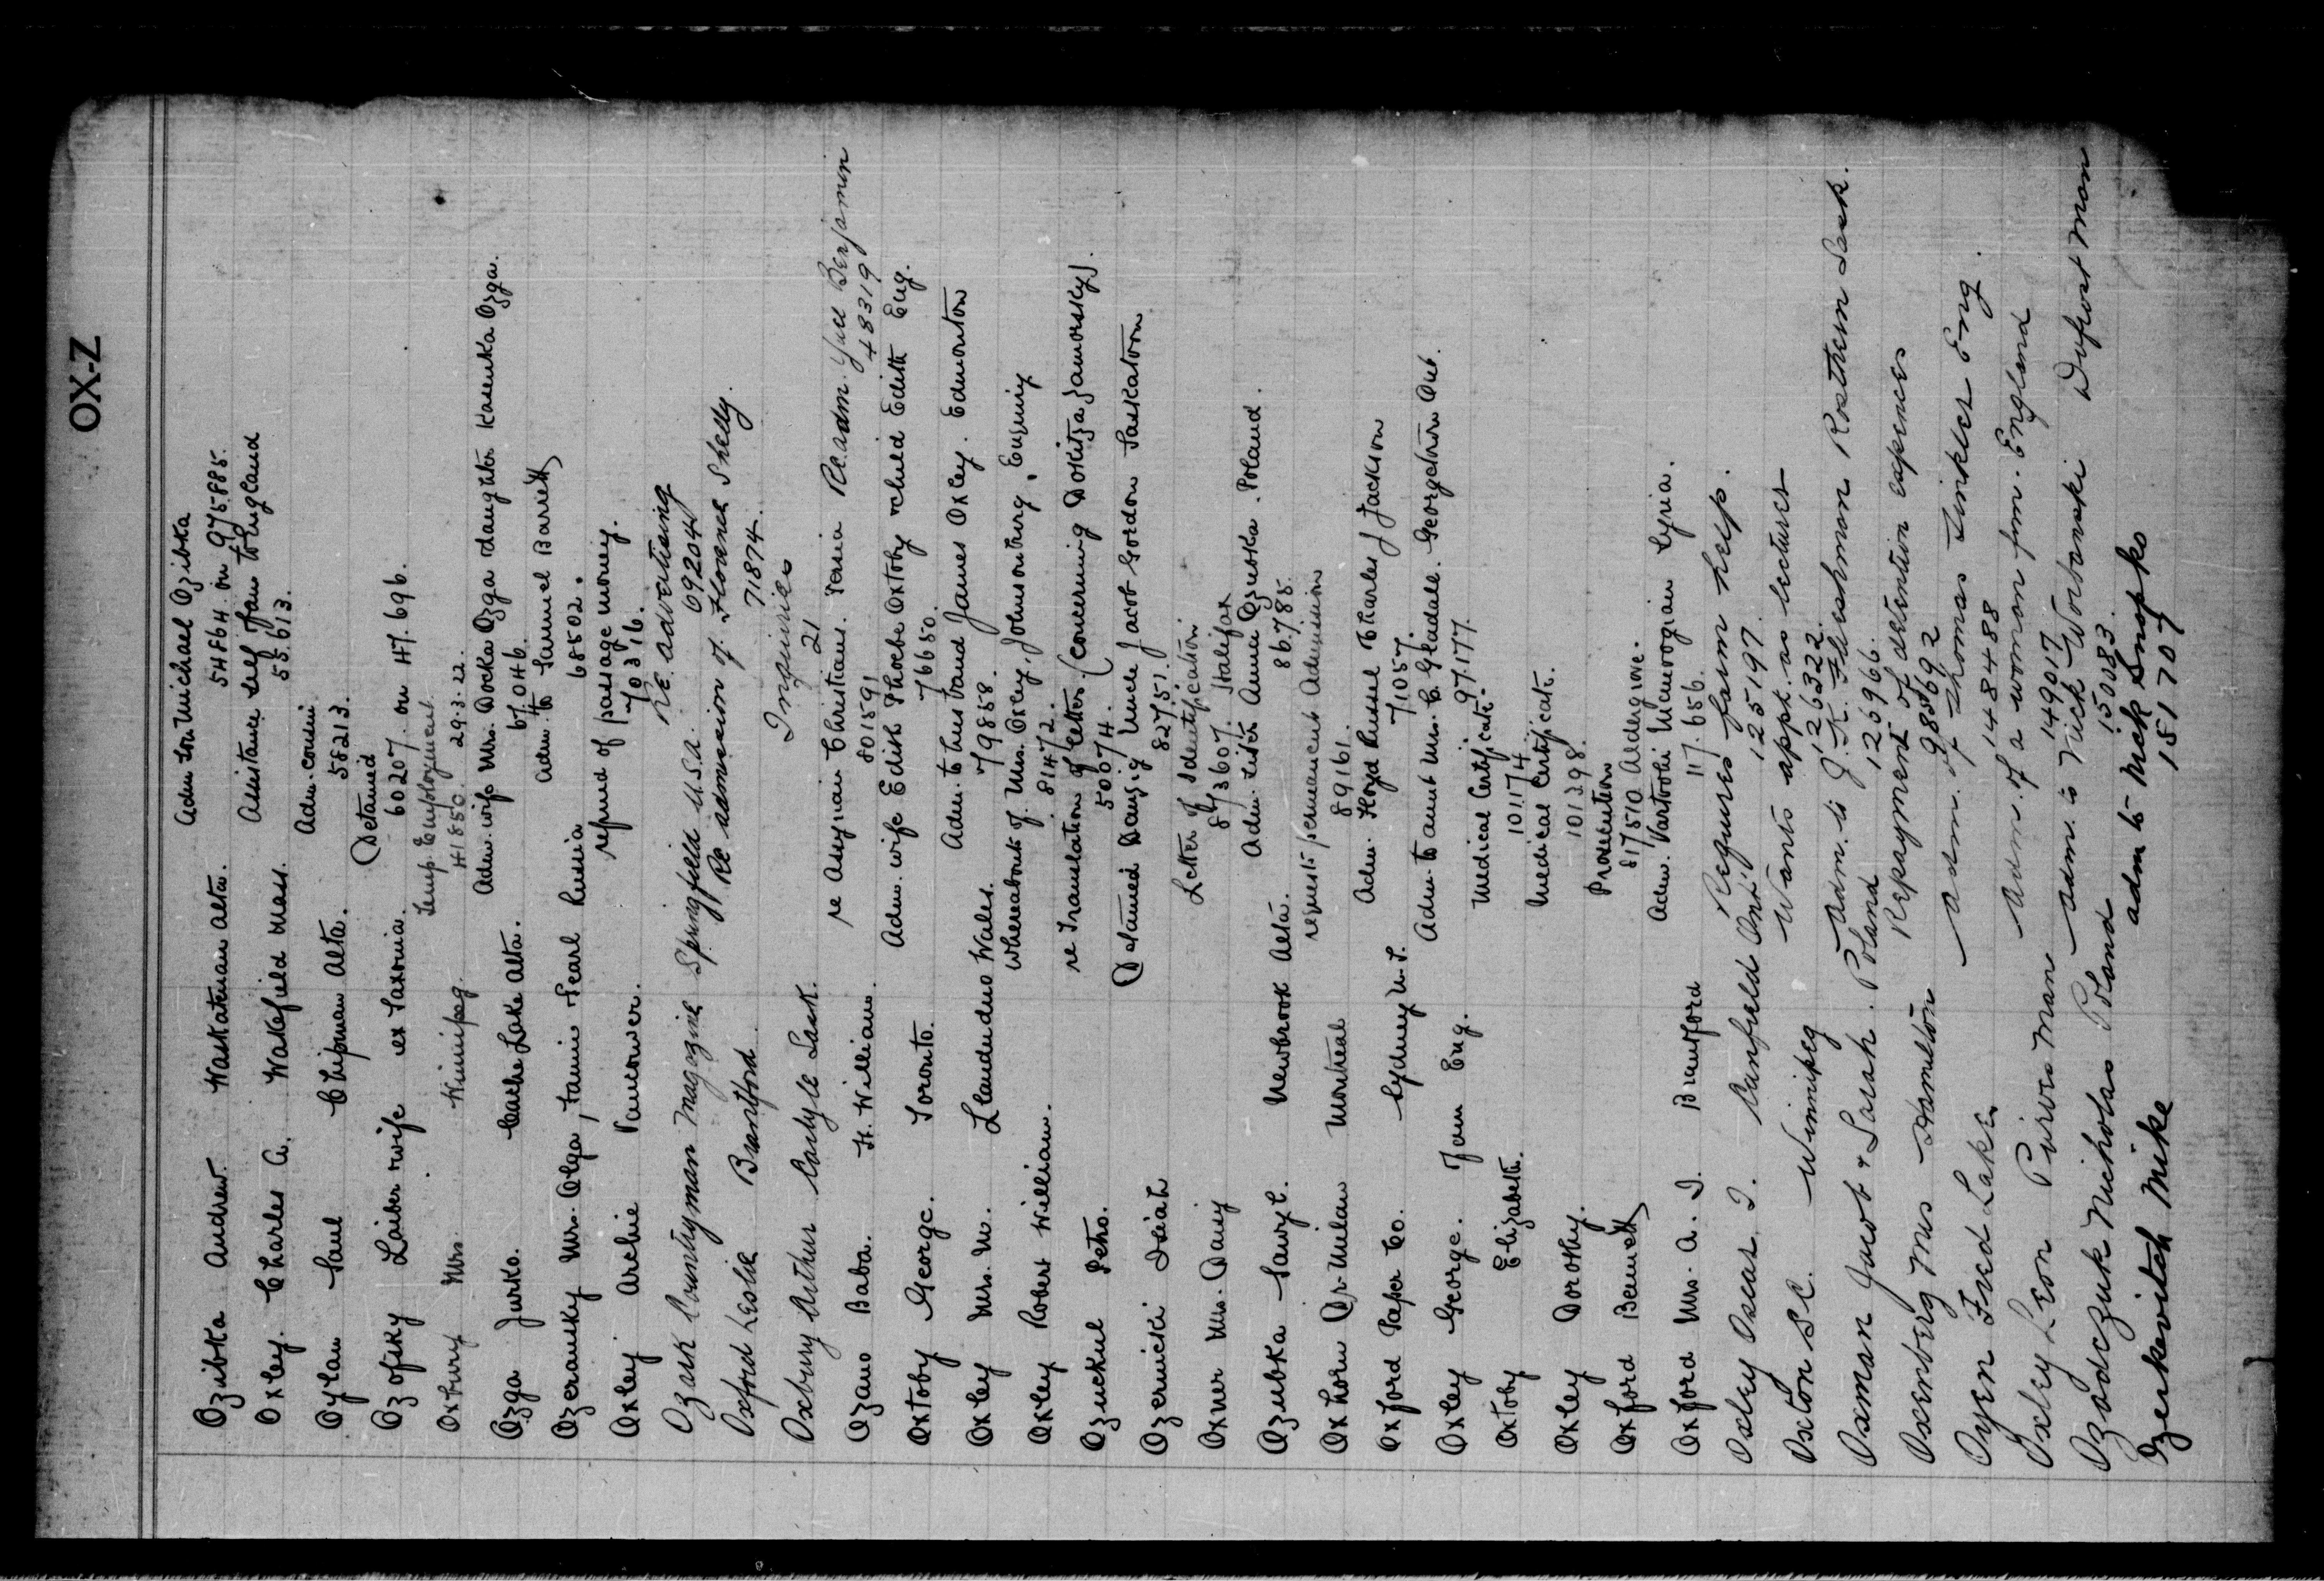 OX-Z
Adm son Michael Ozibka
Ozibka Andrew Waskatenau Alta. 54864 on 975885.
Assistance self & fam to England
Oxley. Charles A. Wakefield Mass. 55613.
Adm. cousin
Oylan Saul Chipman Alta. 58213.
Detained
Ozofsky Laiber & wife ex Saxonia. 60207. on 47.696.
Temp. Employment
Oxbury Mrs. Winnipeg. 41850. 29.3.22.
Adm. wife Mrs. Docka Ozga daughter Kasenka Ozga.
Ozga Jurko. Cache Lake Alta. 67046.
Adm. to Samuel Barrett
Ozeransky Mrs. Olga, Fannie & Pearl Russia 68502.
refund of passage money.
Oxley. Archie Vancouver. 70316.
Re advertising
Ozark Countryman Magazine Springfield U.S.A. 69204
Re admission of Florence Shelly.
Oxford Leslie Brantford 71874.
Inquiries
Oxbury Arthur Carlyle Sask. 21
re Assyrian Christians. Persia Re. adm. Yuel Benjamin
Ozano Baba. Ft. William. 801591 483319
Adm. wife Edith Phoebe Oxtoby & child Edith Eng.
Oxtoby George. Toronto. 76650.
Adm. to husband James Oxley. Edmonton
Oxley Mrs. M. Llandudno Wales. 79858.
Whereabouts of Mrs. Oxley. Johnsonburg,
Oxley Robert William. 81472.
re Translation of letter. (concerning Dokitza Jaworsky).
Ozuckul Petro. 50074.
Detained Danzig Uncle Jacob Gordon Saskatoon
Ozernicki Isiah 82751.
Letter of Identification
Oxner Mrs. Daisy 873607. Halifax
Adm. sister Anna Ozubka. Poland.
Ozubka Newbrook Alta. 86.785.
requests permanent admission
Oxhorn Dr. Milan Montreal 89161.
Adm. Floyd Russel & Charles J Jackson
Oxford Paper Co. 71057.
Adm. to aunt Mrs. C. Gleadall. Georgetown Ont.
Oxley George. Fam Eng. 97177.
Medical Certificate.
Oxtoby Elizabeth. 101174
Medical Certificate.
Oxley Dorothy. 101298.
Prosecution
Oxford Bennett 81750 Aldergrove.
Adm. Vartoohi Manoogian Syria.
Oxford Mrs. A. J. Brantford 117.656.
Requires farm help.
Oxley Oscar J. Canfield Ont. 125197.
Wants appt. as lecturer
Oxton S.C. Winnipeg 126322.
Adm. to J. K. Fleishman Rosthern Sask.
Oxman Jacob & Sarah. Poland 126966.
Repayment of detention expenses
Oxenberg Mrs Hamilton 985692
Adm. of Thomas Tinkler Eng.
Oyen Fred Lake 148488
Adm. of a woman from. England
Oxley Leon Purves Man 149017
Adm. to Nick Worbanski Dufrost Man
Ozadczuk Nicholas Poland 150083
adm to Nick Snopko
Ozerkevitch Mike 151707